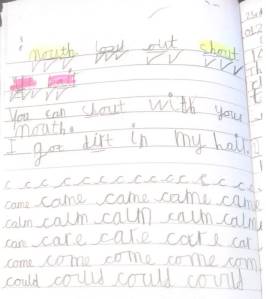 i
mouth loud out shout
You can shout with your
mouth.
I got dirt in my hair.
c c c c c c c c c c c c c c
came came came came came
calm calm calm calm calm
care care care care car
come come come come com
could could could could